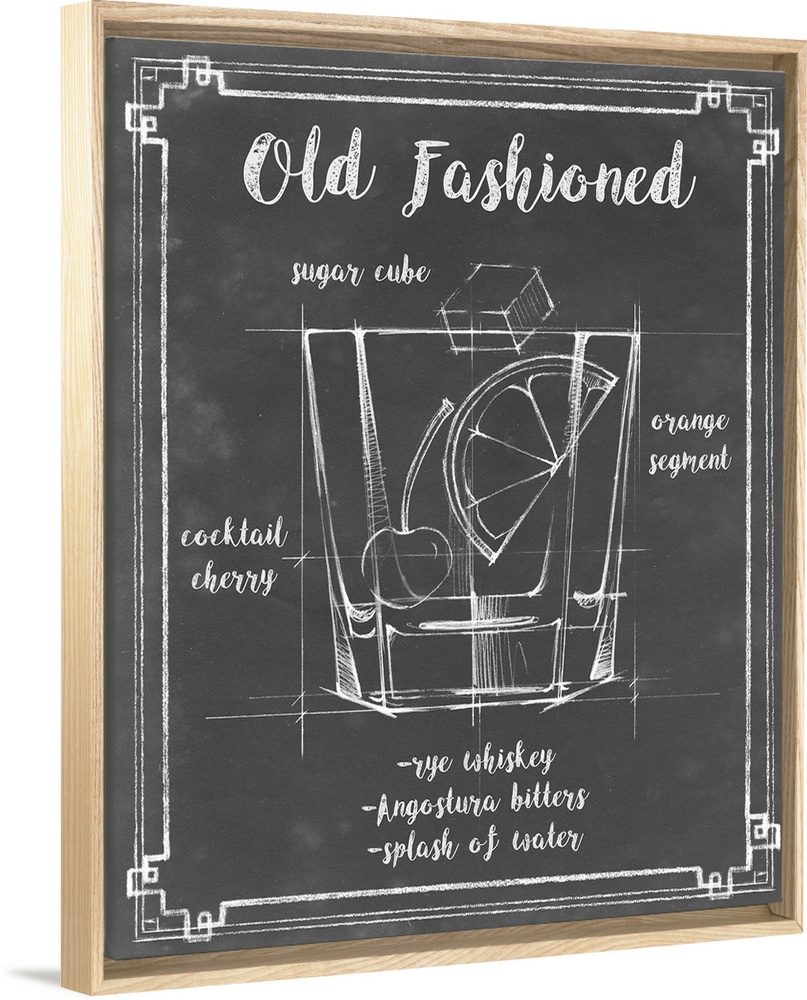 Old Fashioned
sugar cube
orange
segment
cocktail
cherry
-rye whiskey
-Angostura bitters
-splash of water